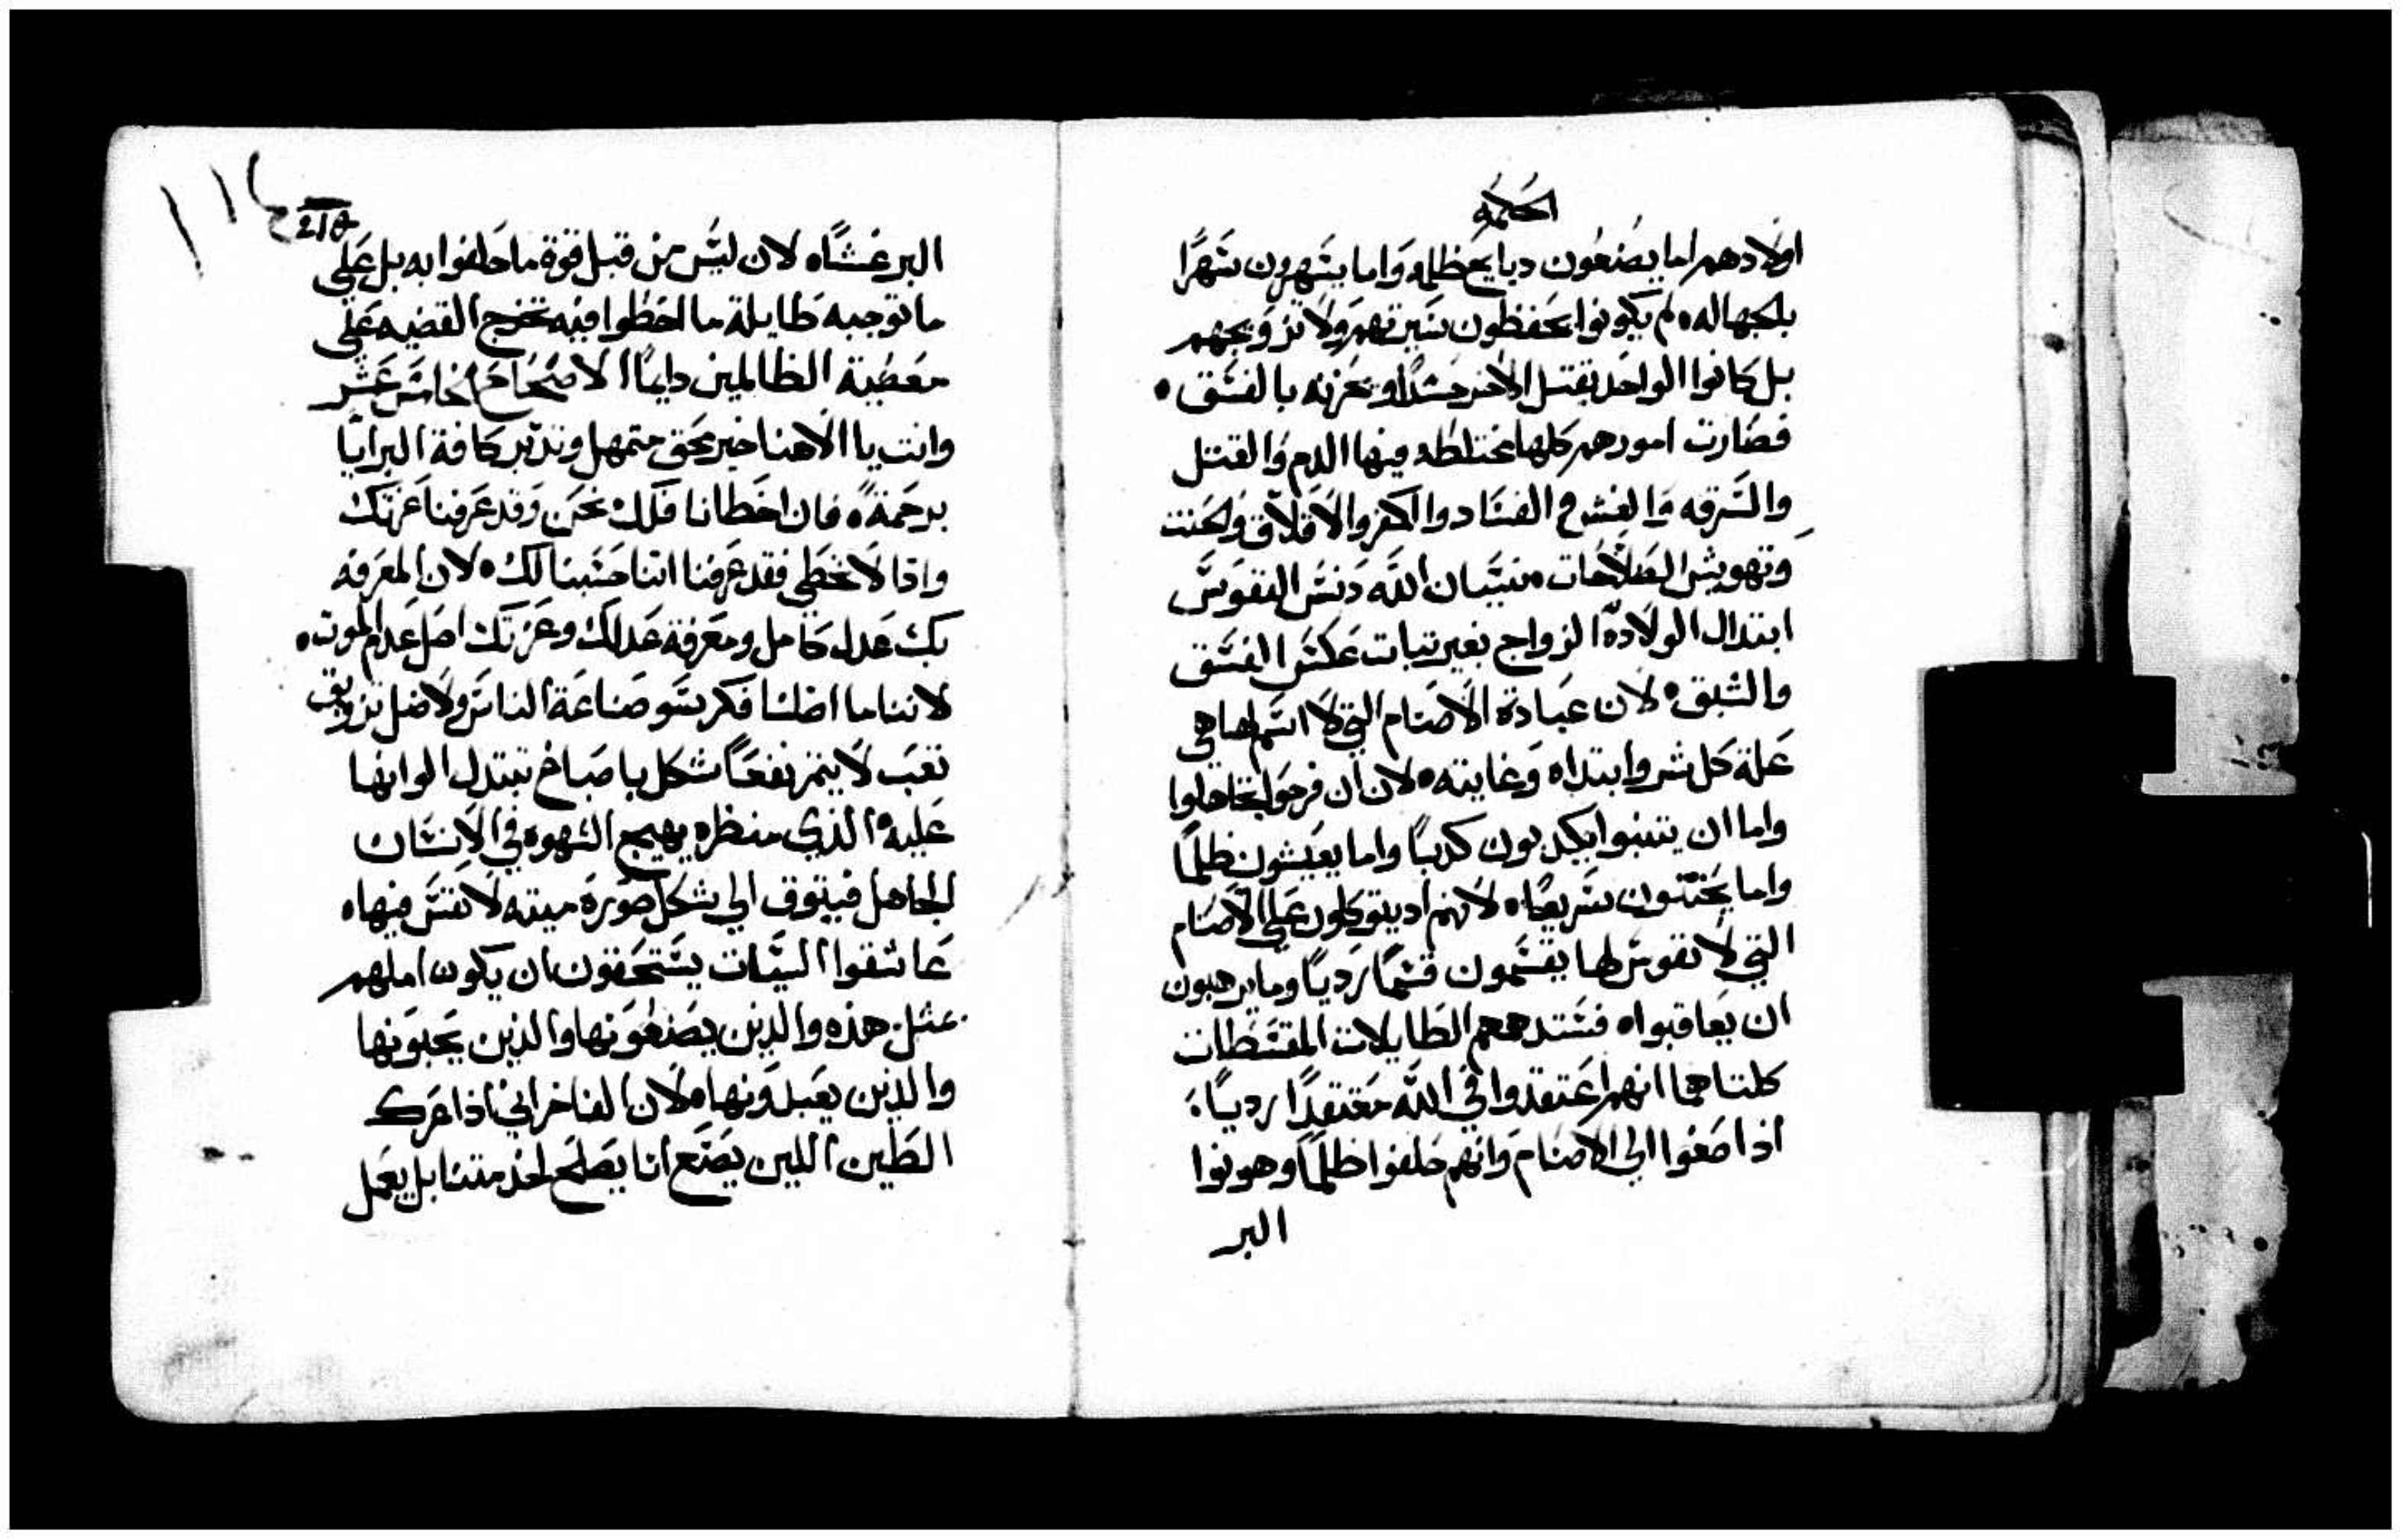 الحكمه
اولادهم اما يصنعون دبايح ظلمه واما يسهرون سهرًا
بلجهاله ولم يكونوا يحفظون سيرتهم ولا تزويجهم
بل كانوا الواحد يقتل الاخر حسدًا او يحزنه بالفسق ٥
فصارت امورهم كلها مختلطه فيها الدم والقتل
والسرقه والغش والفساد والكفر والاقلاق والحنت
وتهويش الصلاحات ٥ نسيان الله دنس النفوس
ابتدال الولاده الزواج بغير تبات عكس الفسق
والشبق ٥ لان عبادة الاصنام التي لا اسم لها هي
علة كل شر وابتداه وغايته ٥ لان ان فرحوا يتجاهلوا
واما ان يتنبوا يكدبون كدبًا واما يعيشون ظلمًا
واما يحنتون سريعًا ٥ لانهم اد يتوكلون على الاصنام
التي لا نفوس لها يقسمون قسمًا رديًا وما يرهبون
ان يعاقبوا ٥ فستدهمهم الطايلات المقسطات
كلتاهما انهم اعتقدوا في الله معتقدًا رديًا
اذا صغوا الى الاصنام وانهم حلفوا ظلمًا وهونوا
البر
٢١٥
البر غشًا ٥ لان ليس من قبل قوة ما حلفوا به بل على
ما توجبه طايلة ما اخطوا فيه تخرج القضيه على
معصية الظالمين دايمًا الاصحاح الخامس عشر
وانت يا الاهنا خير محق متمهل وتدبر كافة البرايا
برحمة ٥ فان اخطانا فلك نحن وقد عرفنا عزتك
واذا لا نخطي فقد عرفنا اننا حسبنا لك ٥ لان المعرفه
بك عدل كامل ومعرفة عدلك وعزتك اصل عدم الموت ٥
لاننا ما اضلنا فكر سو صناعة الناس ولا ضل تزويق
تعب لا يتمر نفعًا شكل باصباغ تبتدل الوانها
عليه الذي منظره يهيج الشهوه في الانسان
الجاهل فيتوق الى شكل صورة ميته لا نفس فيها ٥
عاشقوا السيات يستحقون ان يكون املهم
مثل هذه والدين يصنعونها والذين يحبونها
والدين يعبدونها ٥ لان الفاخراني اذا عرك
الطين اللين يصنع انا يصلح لخدمتنا بل يعمل